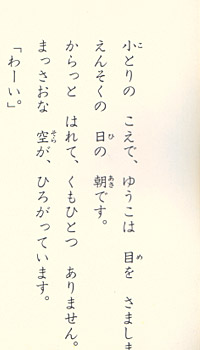 小とりの こえで、ゆうこは 目を さましま
えんそくの 日の 朝です。
からっと はれて、くもひとつ ありません。
まっさおな 空が、ひろがっています。
「わーい。」